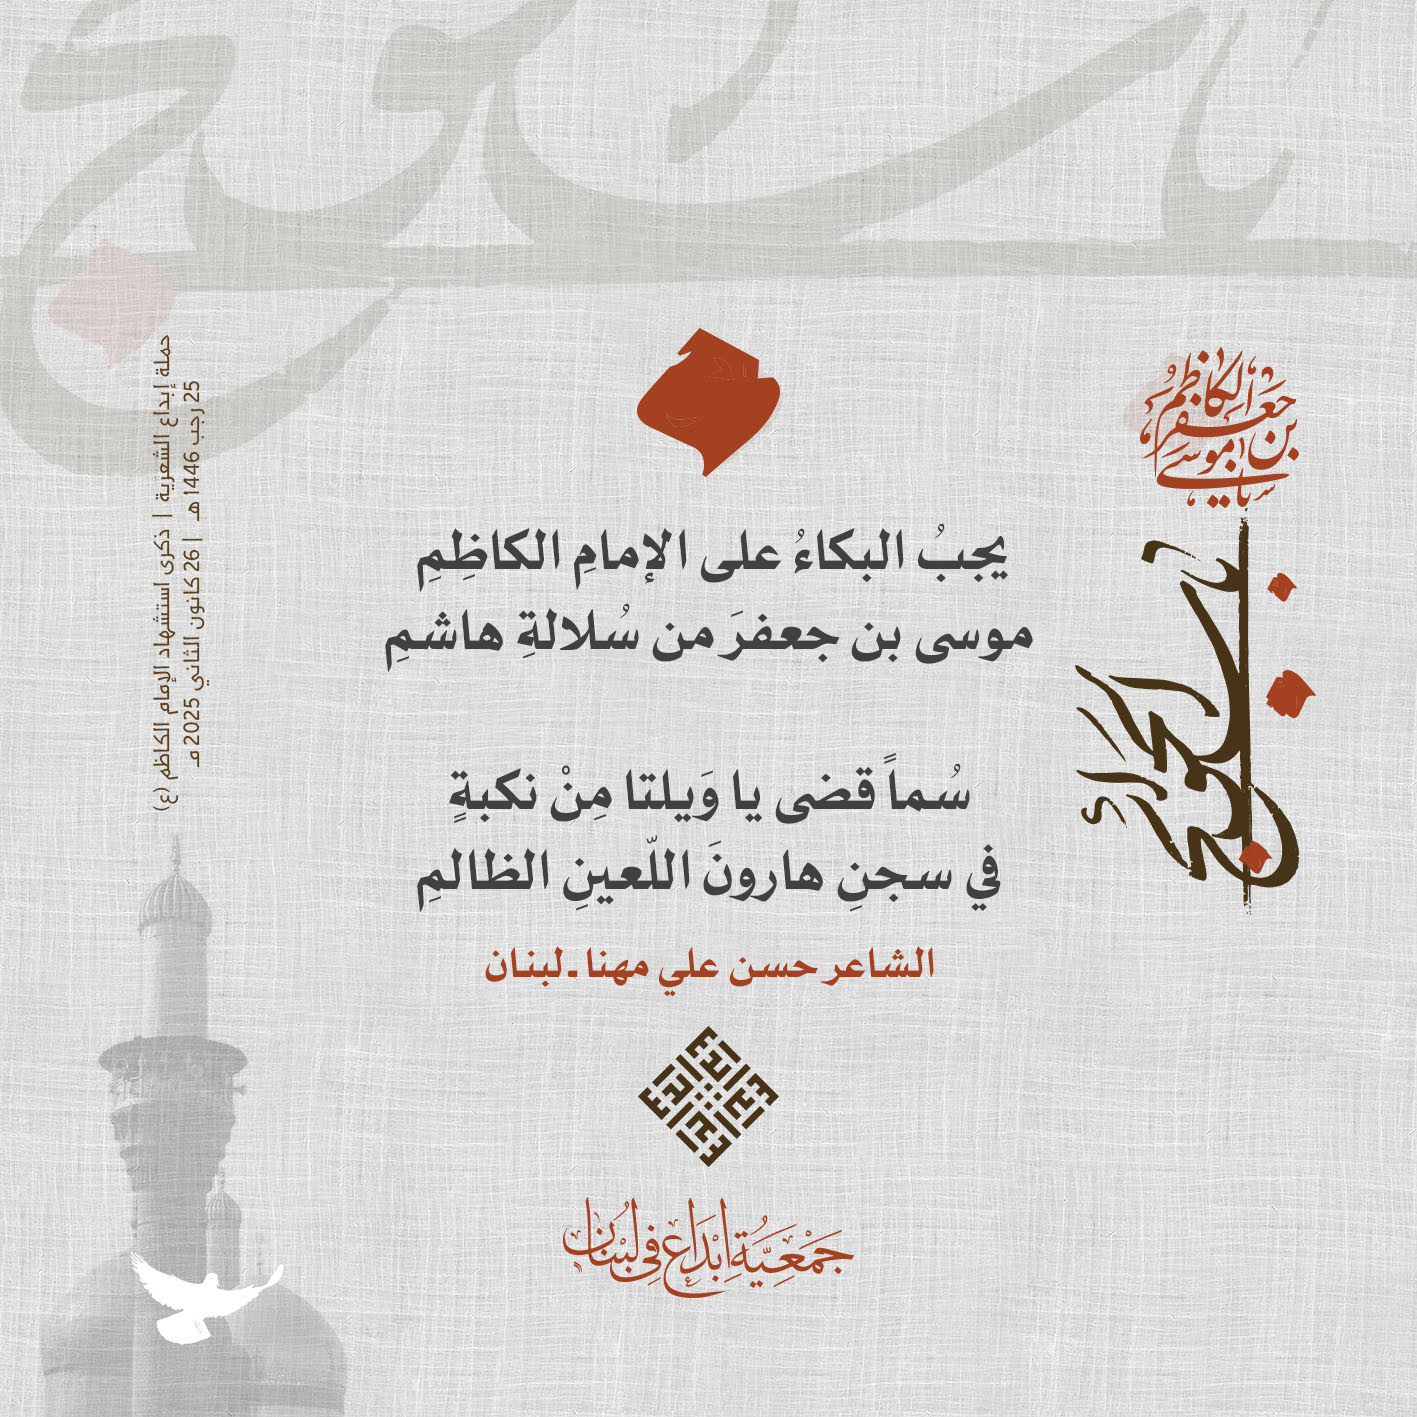 يا موسى بن جعفر الكاظم
باب الحوائج
يجبُ البكاءُ على الإمامِ الكاظِمِ
موسى بن جعفرَ من سُلالةِ هاشمِ
سُماً قضى يا وَيلتا مِنْ نكبةٍ
في سجنِ هارونَ اللّعينِ الظالمِ
الشاعر حسن علي مهنا ـ لبنان
جَمْعِيَّةُ إِبْدَاع فِي لُبْنَان
حملة إبداع الشعرية | ذكرى استشهاد الإمام الكاظم (ع)
25 رجب 1446 هـ | 26 كانون الثاني 2025 مـ